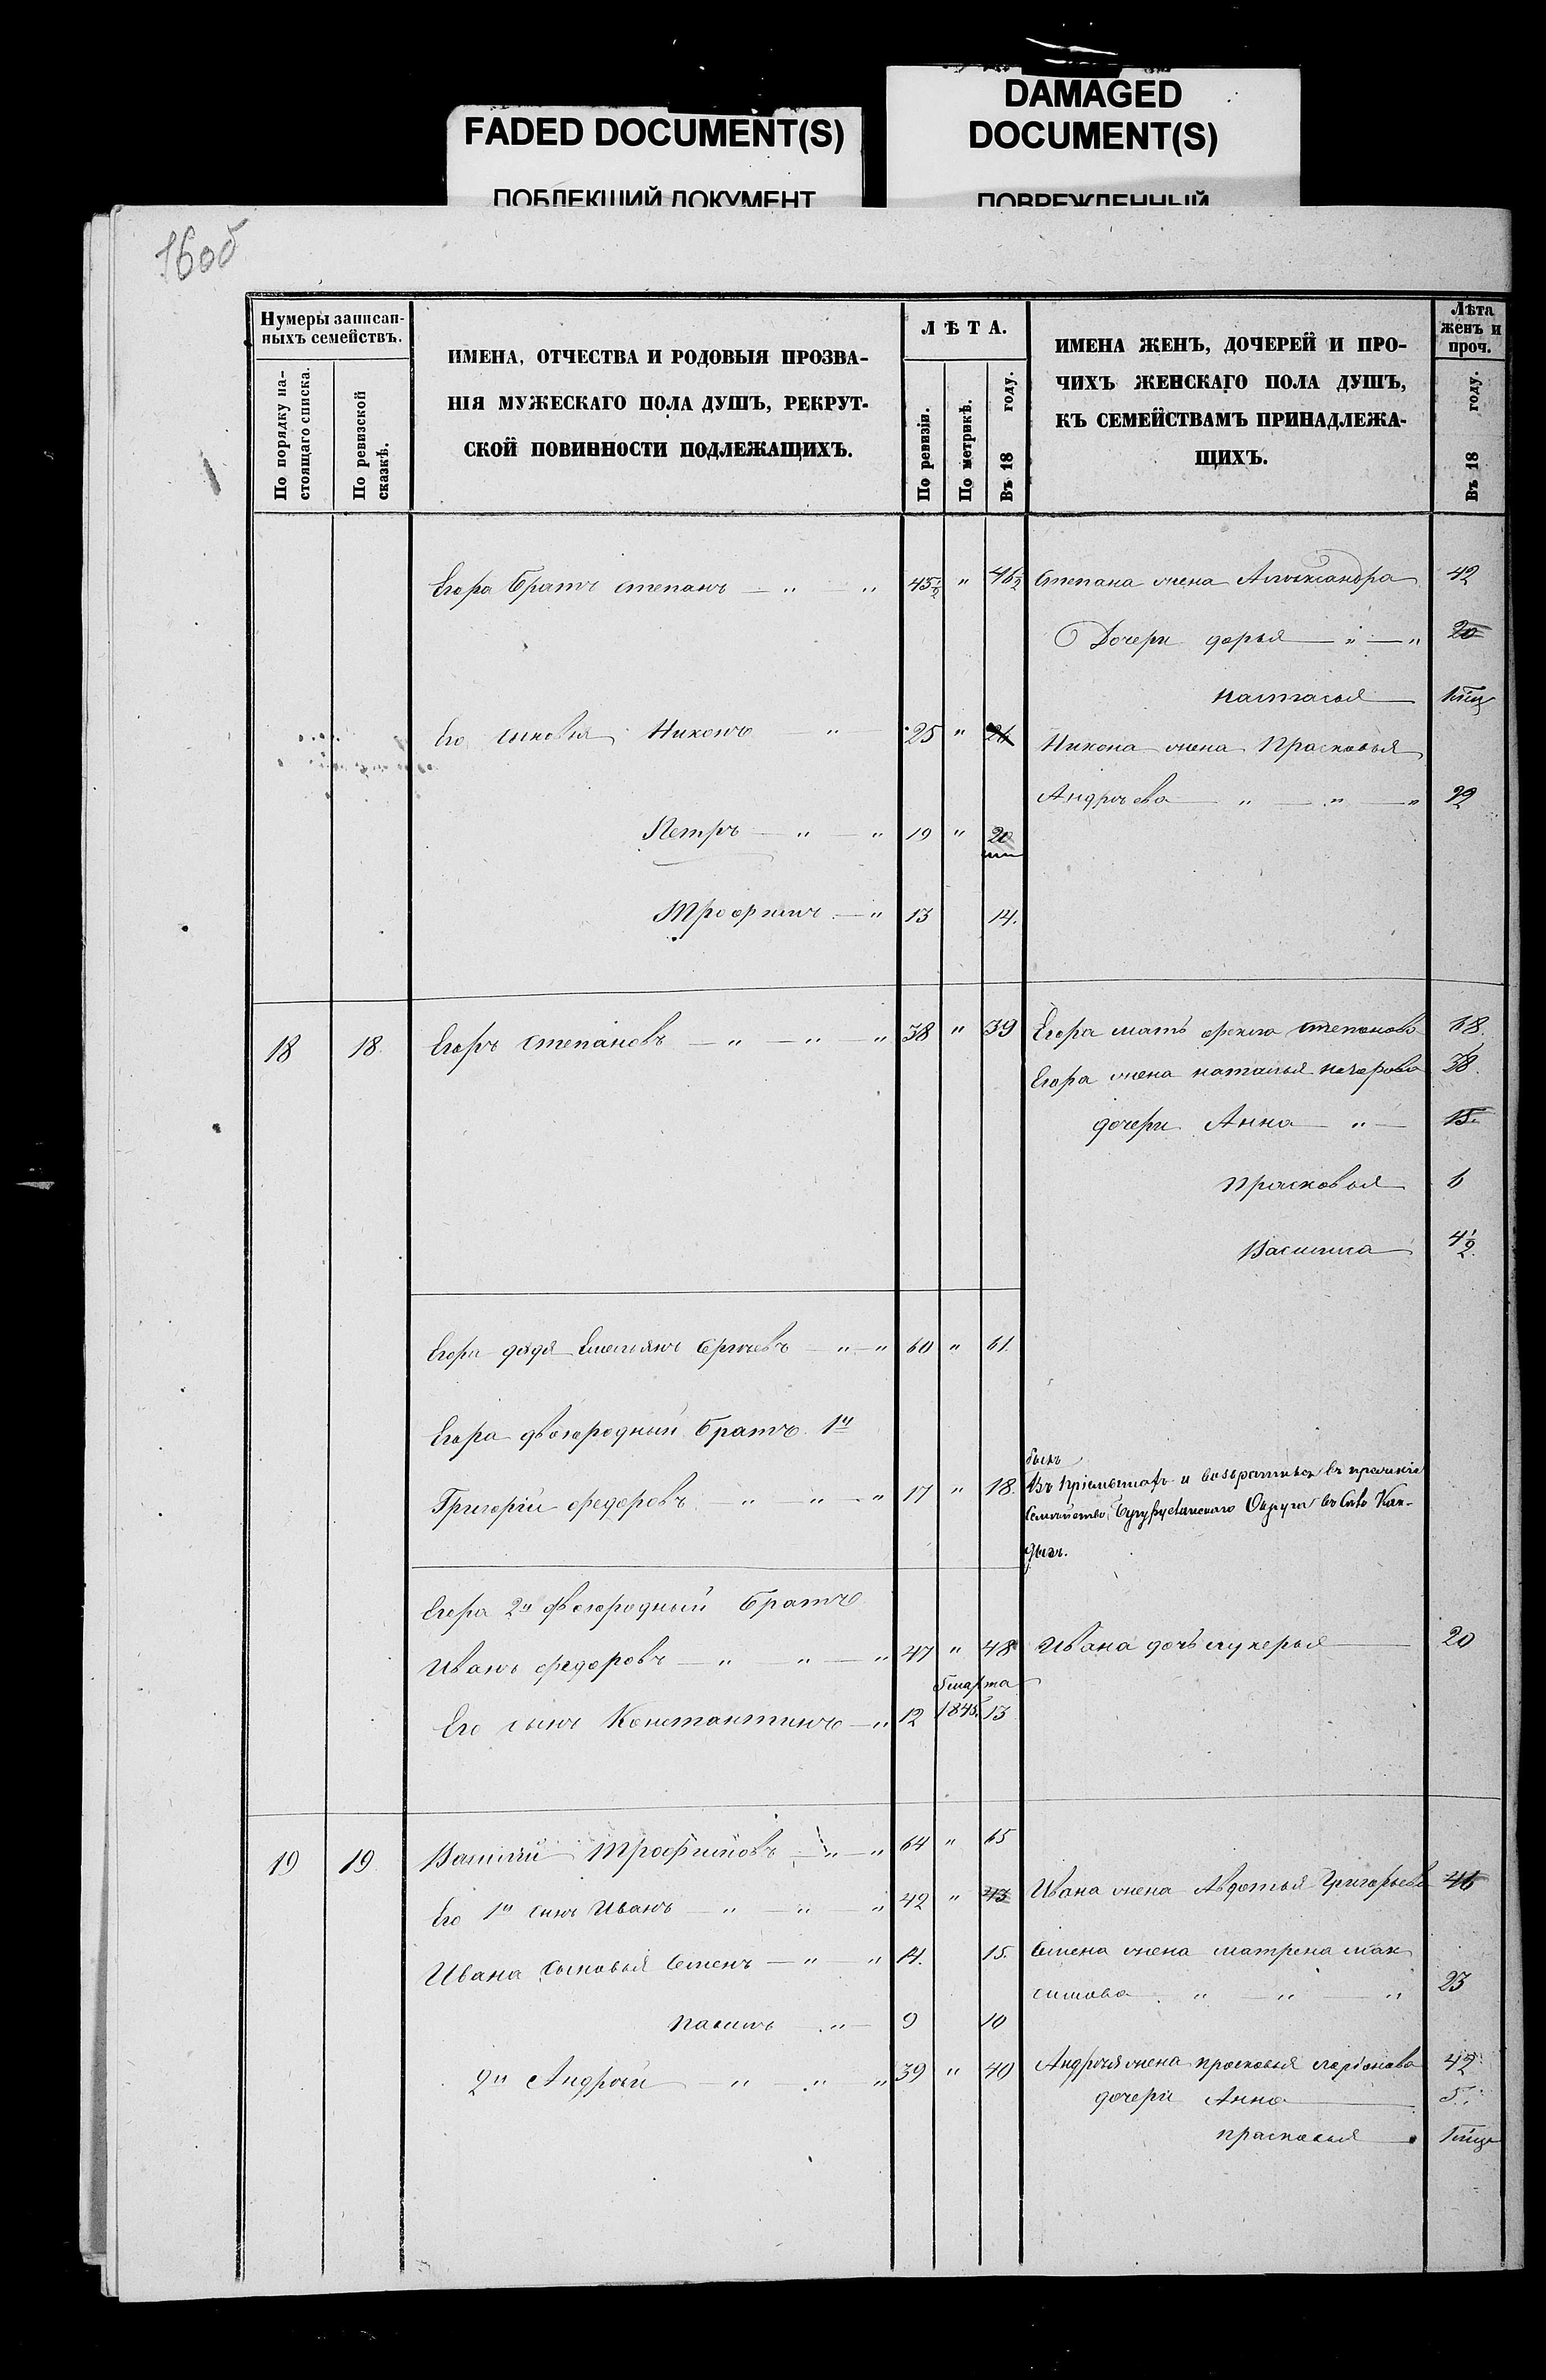 FADED DOCUMENT(S)
ПОБЛЕКШИЙ ДОКУМЕНТ
DAMAGED
DOCUMENT(S)
ПОВРЕЖДЕННЫЙ
16об
Нумеры записан-
ныхъ семействъ.
По порядку на-
стоящаго списка.
По ревизской
сказкѣ.
ИМЕНА, ОТЧЕСТВА И РОДОВЫЯ ПРОЗВА-
НІЯ МУЖЕСКАГО ПОЛА ДУШЪ, РЕКРУТ-
СКОЙ ПОВИННОСТИ ПОДЛЕЖАЩИХЪ.
ЛѢТА.
По ревизіи.
По метрикѣ.
Въ 18 году.
ИМЕНА ЖЕНЪ, ДОЧЕРЕЙ И ПРО-
ЧИХЪ ЖЕНСКАГО ПОЛА ДУШЪ,
КЪ СЕМЕЙСТВАМЪ ПРИНАДЛЕЖА-
ЩИХЪ.
Лѣта
женъ и
проч.
Въ 18 году.
Егора братъ степанъ — " — " 45½ " 46½ Степана жена Александра 42
Дочери дарья — " — " 20
настасья
Его сыновья Никонъ — " — 25 " 26 Никона жена Прасковья
Андрѣева — " — " — " 22
Петръ — " — " 19 " 20
Трофимъ — " 13 14.
18 18. Егоръ степановъ — " — " — " 38 " 39 Егора мать степанова 68.
Егора жена наталья 38.
дочери Анна — " — 15.
прасковья 6
Василиса 4½.
Егора дядя Емельянъ Сергѣевъ — " — " 60 " 61.
Егора двоюродный братъ 1й
Григорій федоровъ — " — " — " 17 " 18.
былъ
въ и возвратился въ прежнѣе
Семейство, Бугурусланскаго Округа въ Село Кан-
дызъ.
Егора 2й двоюродный братъ
Иванъ федоровъ — " — " — " 47 " 48 Ивана дочь лукерья — 20
марта
Его сынъ Константинъ — " 12 1845. 13
19 19 Василій Трофимовъ — " — " 64 " 65
Его 1й сынъ Иванъ — " — " — " 42 " 43 Ивана жена Авдотья Григорьева 46
Ивана сыновья Семенъ — " — " 14. 15. Семена жена матрена мак
симова — " — " — " 23
павелъ — " — 9 10
2й Андрѣй — " — " — " 39 " 40 Андрѣя жена прасковья ларіонова 42
дочери Анна — 5.
прасковья —